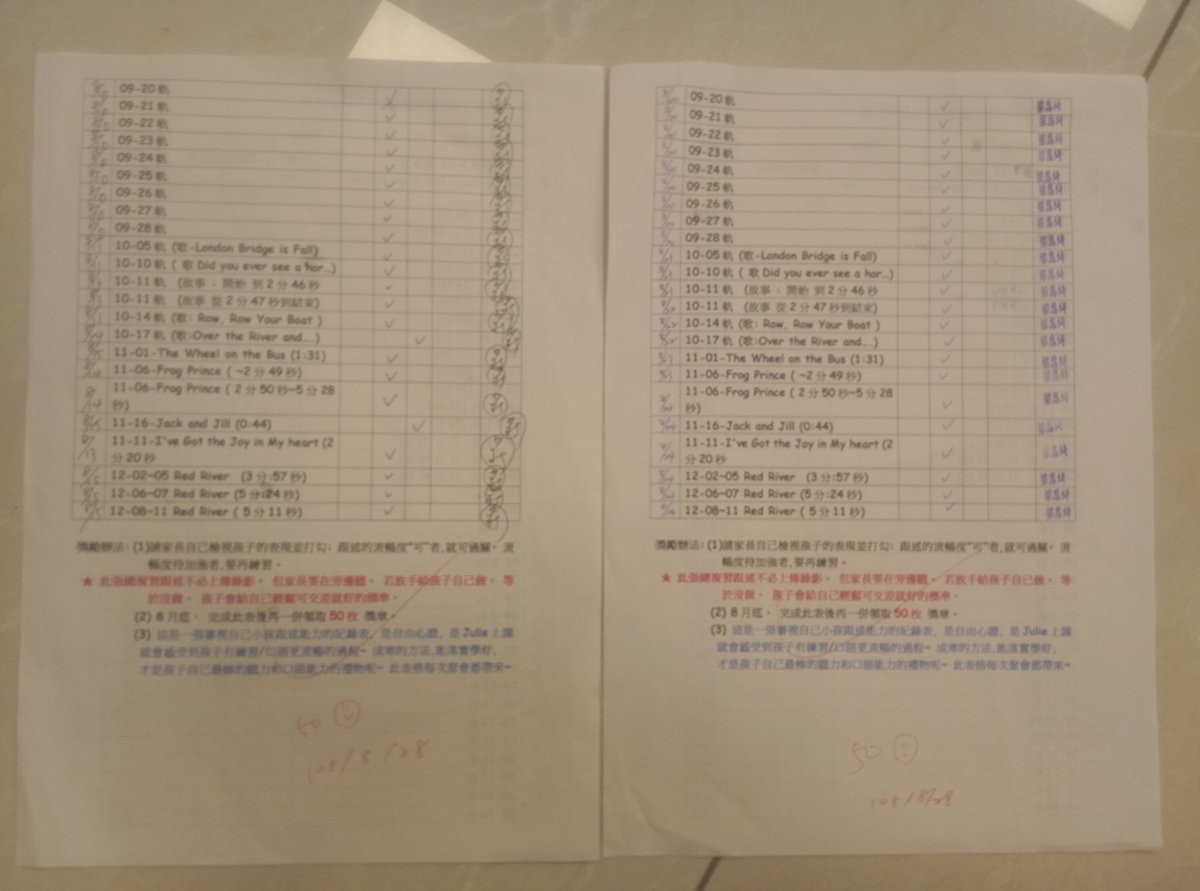 09-20 軌
09-21 軌
09-22 軌
09-23 軌
09-24 軌
09-25 軌
09-26 軌
09-27 軌
09-28 軌
10-05 軌 (歌-London Bridge is Fall)
10-10 軌 ( 歌 Did you ever see a hor…)
10-11 軌 (故事 : 開始 到 2 分 46 秒
10-11 軌 (故事 從 2 分 47 秒到結束)
10-14 軌 (歌: Row, Row Your Boat )
10-17 軌 (歌:Over the River and….)
11-01-The Wheel on the Bus (1:31)
11-06-Frog Prince ( ~2 分 49 秒)
11-06-Frog Prince ( 2 分 50 秒~5 分 28
秒)
11-16-Jack and Jill (0:44)
11-11-I've Got the Joy in My heart (2
分 20 秒
12-02~05 Red River (3 分:57 秒)
12-06~07 Red River (5 分:24 秒)
12-08~11 Red River ( 5 分 11 秒)
獎勵辦法: (1)請家長自己檢視孩子的表現並打勾: 跟述的流暢度"可"者,就可過關。 流
暢度待加強者,要再練習。
★ 此張總複習跟述不必上傳錄影。 但家長要在旁邊聽。 若放手給孩子自己做。 等
於沒做。 孩子會給自己輕鬆可交差就好的標準。
(2) 8 月底。 完成此表後再一併領取 50 枚 獎章。
(3) 這是一張審視自己小孩跟述能力的記錄表, 是自由心證, 是 Julie 上課
就會感受到孩子有練習/口語更流暢的過程~ 成寒的方法,能落實學好,
才是孩子自己最棒的聽力和口語能力的禮物呢~ 此表格每次聚會都帶來~
50
108/8/28
09-20 軌
09-21 軌
09-22 軌
09-23 軌
09-24 軌
09-25 軌
09-26 軌
09-27 軌
09-28 軌
10-05 軌 (歌-London Bridge is Fall)
10-10 軌 ( 歌 Did you ever see a hor…)
10-11 軌 (故事 : 開始 到 2 分 46 秒
10-11 軌 (故事 從 2 分 47 秒到結束)
10-14 軌 (歌: Row, Row Your Boat )
10-17 軌 (歌:Over the River and….)
11-01-The Wheel on the Bus (1:31)
11-06-Frog Prince ( ~2 分 49 秒)
11-06-Frog Prince ( 2 分 50 秒~5 分 28
秒)
11-16-Jack and Jill (0:44)
11-11-I've Got the Joy in My heart (2
分 20 秒
12-02~05 Red River (3 分:57 秒)
12-06~07 Red River (5 分:24 秒)
12-08~11 Red River ( 5 分 11 秒)
獎勵辦法: (1)請家長自己檢視孩子的表現並打勾: 跟述的流暢度"可"者,就可過關。 流
暢度待加強者,要再練習。
★ 此張總複習跟述不必上傳錄影。 但家長要在旁邊聽。 若放手給孩子自己做。 等
於沒做。 孩子會給自己輕鬆可交差就好的標準。
(2) 8 月底。 完成此表後再一併領取 50 枚 獎章。
(3) 這是一張審視自己小孩跟述能力的記錄表, 是自由心證, 是 Julie 上課
就會感受到孩子有練習/口語更流暢的過程~ 成寒的方法,能落實學好,
才是孩子自己最棒的聽力和口語能力的禮物呢~ 此表格每次聚會都帶來~
50
108/8/28